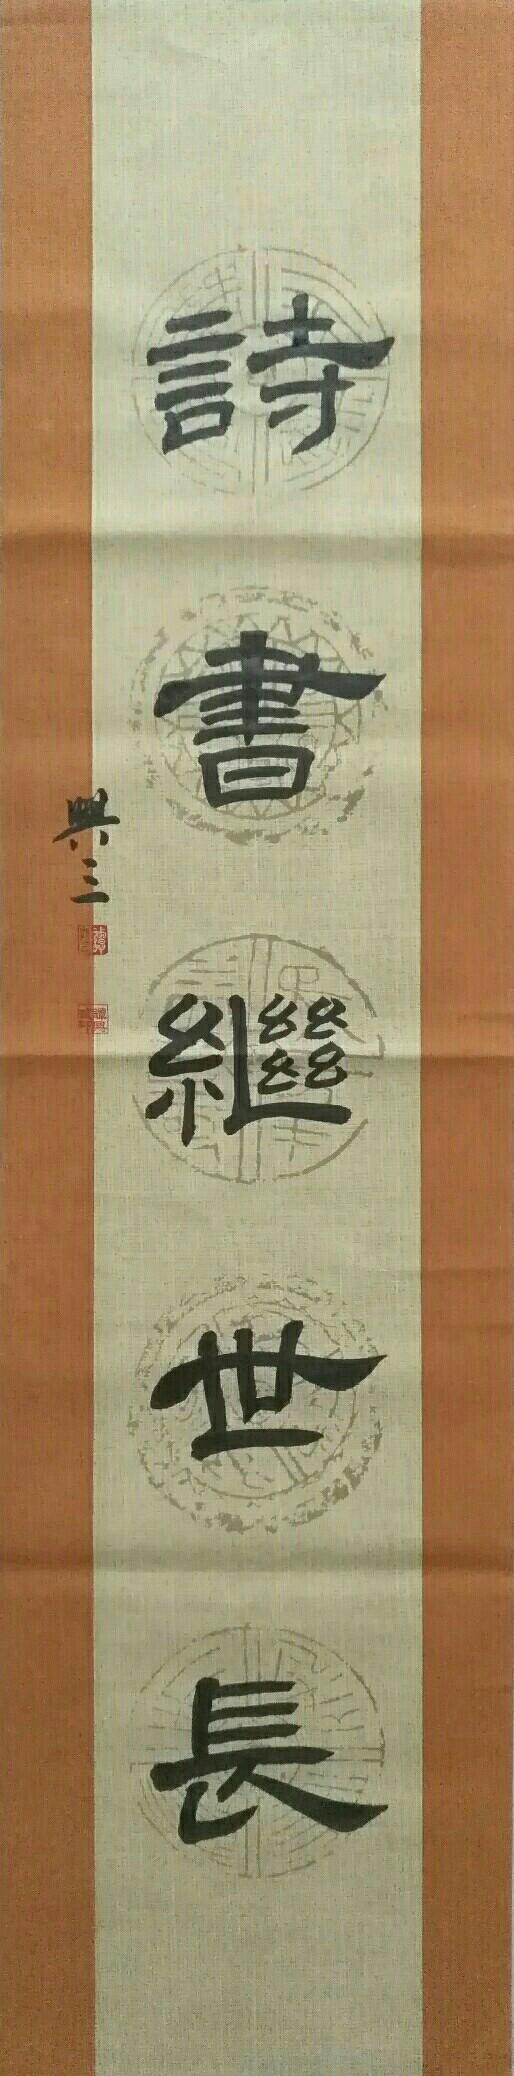 詩書繼世長
興三